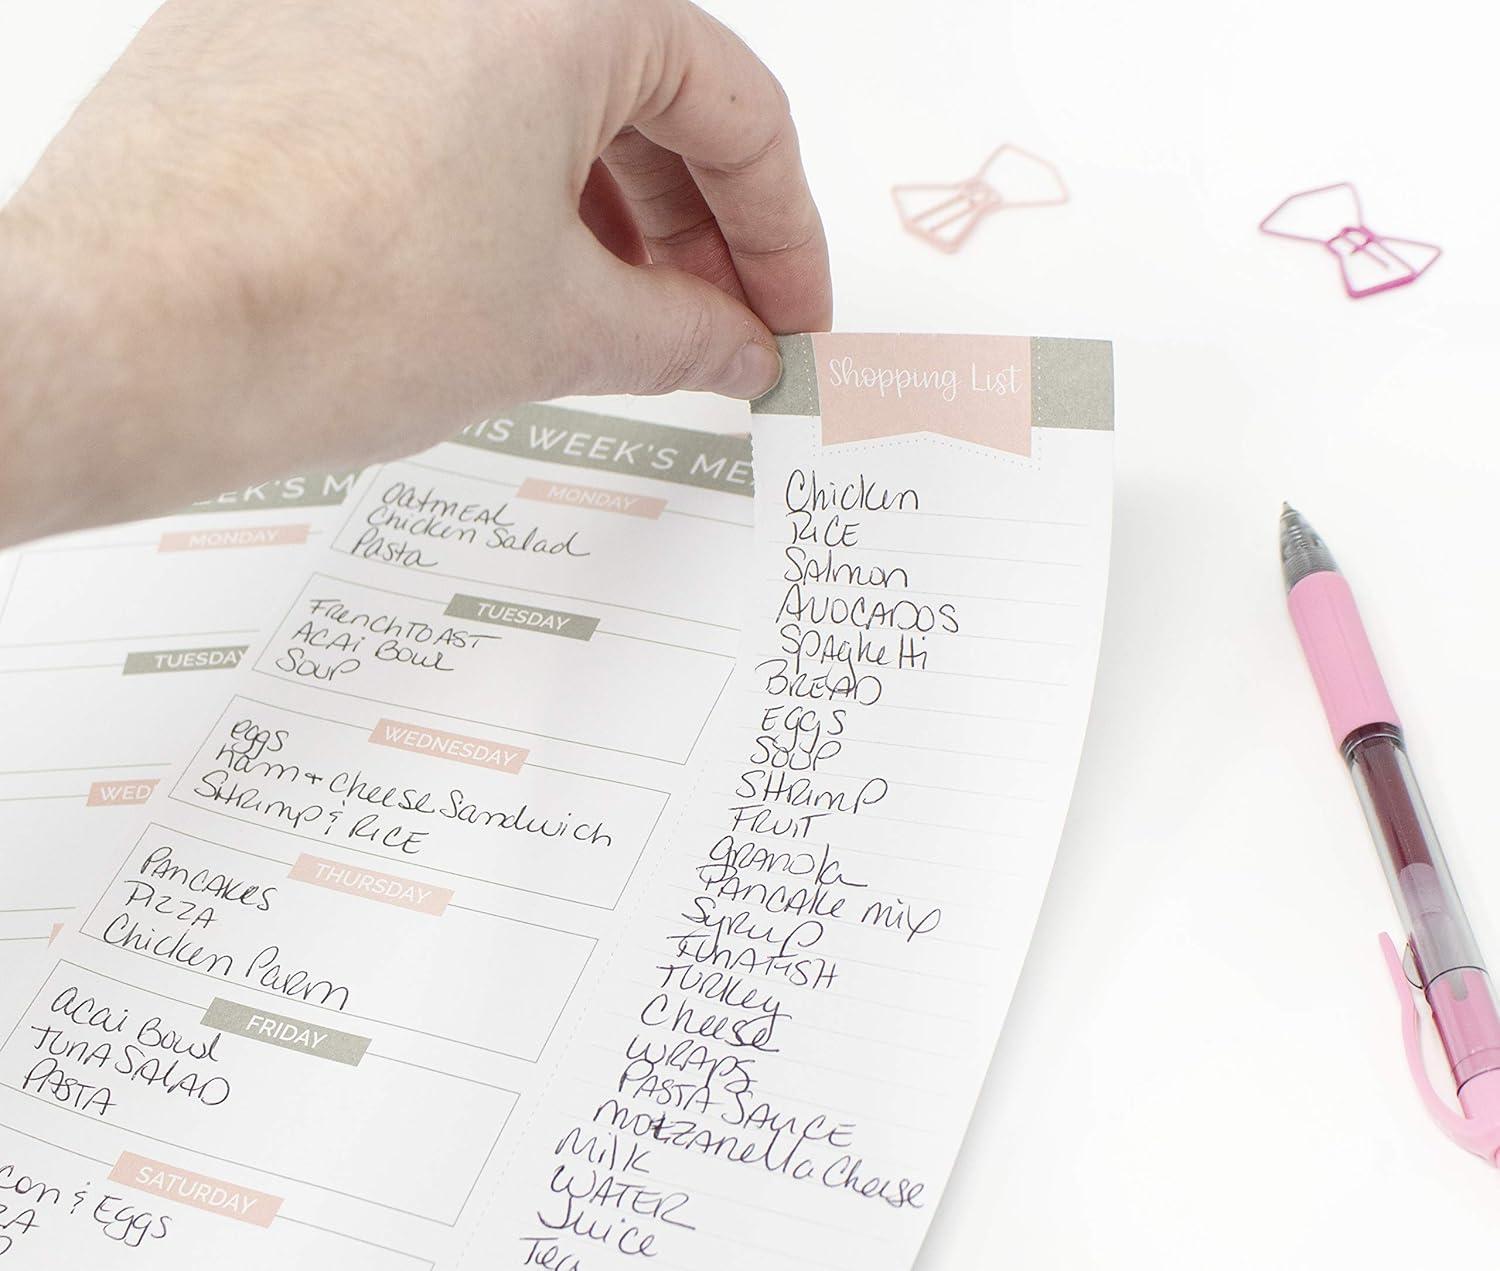 THIS WEEK'S MEA
MONDAY
OATMEAL
Chicken Salad
Pasta
TUESDAY
FRENCH TOAST
ACAi BOWL
SOUP
WEDNESDAY
eggs
Ham + cheese Sandwich
SHRIMP & RICE
THURSDAY
PANCAKES
PIZZA
Chicken Parm
FRIDAY
acai Bowl
TUNA SALAD
PASTA
SATURDAY
con & Eggs
ZA
EEK'S M
MONDAY
TUESDAY
WED
Shopping List
Chicken
RICE
Salmon
AVOCADOS
SPAgheTTi
BREAD
EGGS
SOUP
SHRIMP
FRUIT
GRANOLa
PANCAKE MIX
SYRUP
TUNA FISH
TURKEY
Cheese
WRAPS
PASTA SAUCE
MOZZARella Cheese
Milk
WATER
Juice
Tea